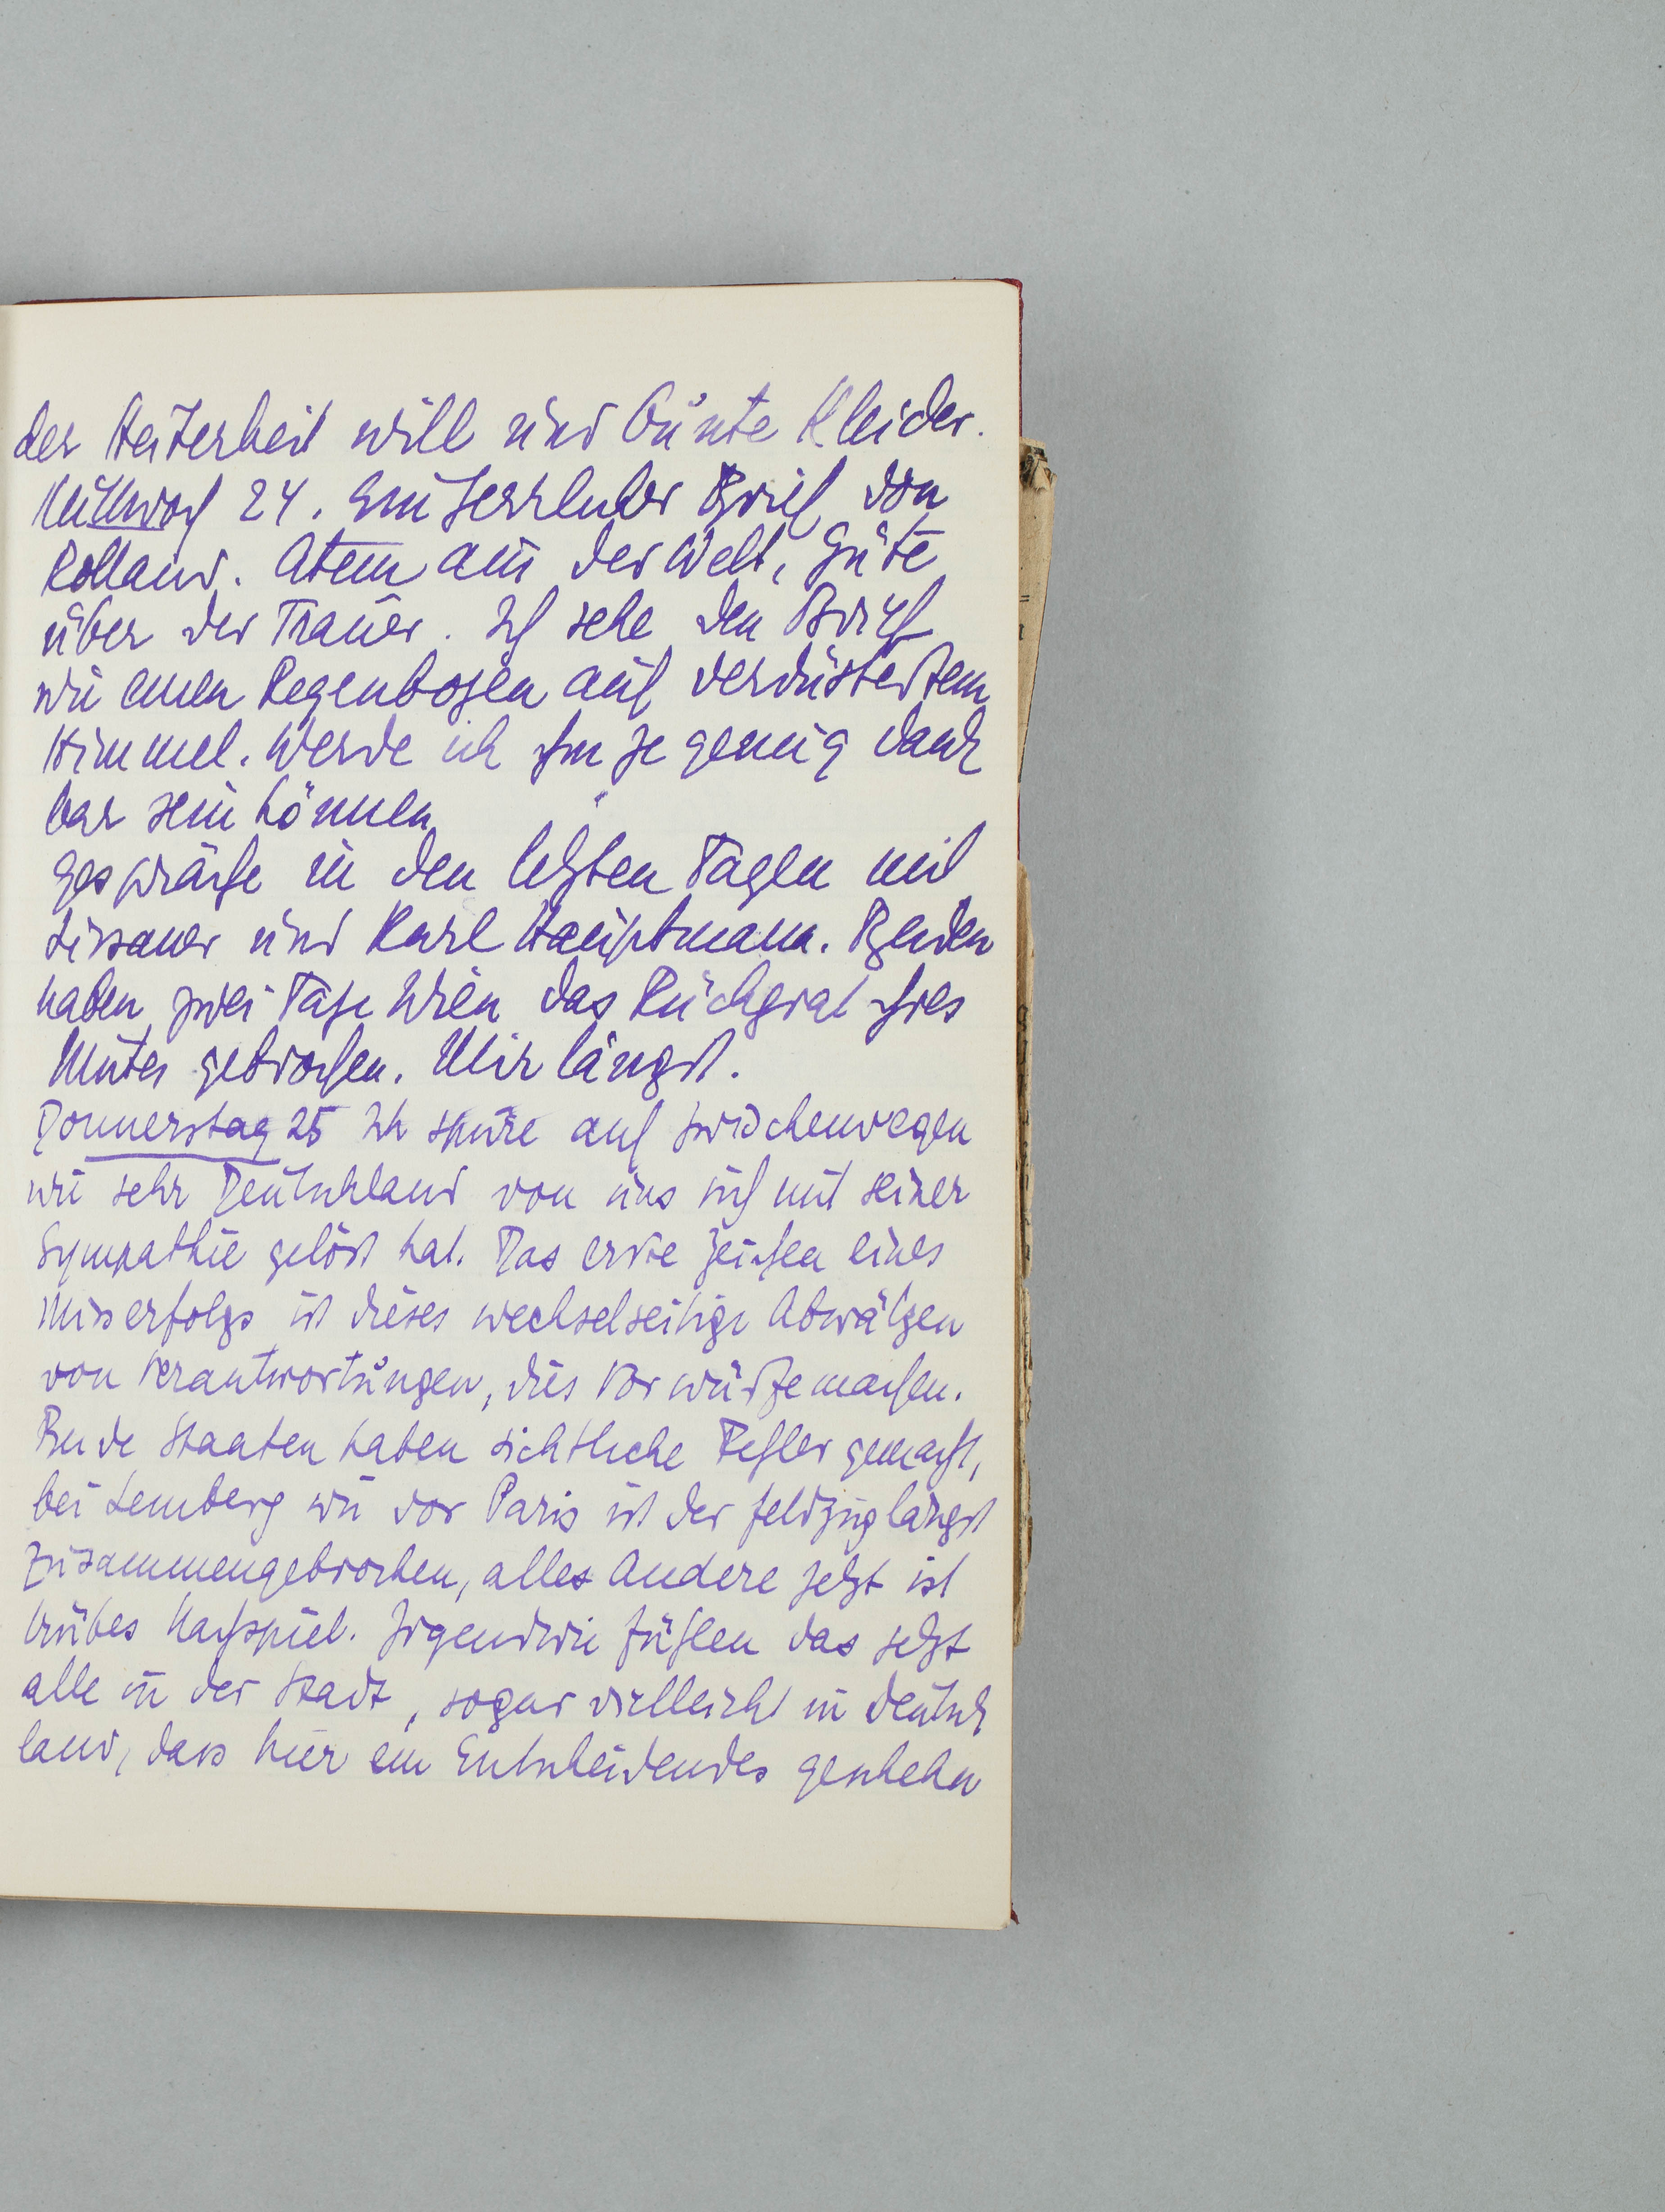 der Heiterkeit will und bunte Kleider.
Mittwoch 24. Ein herrlicher Brief von
Rolland. Atem aus der Welt, Güte
über der Trauer. Ich sehe den Brief
wie einen Regenbogen auf verdüstertem
Himmel. Werde ich ihm je genug dank
bar sein können
Gespräche in den letzten Tagen mit
Lissauer und Karl Hauptmann. Beiden
haben zwei Tage Wien das Rückgrat ihres
Mutes gebrochen. Mir längst.
Donnerstag 25 Ich spüre auf Zwischenwegen
wie sehr Deutschland von uns sich mit seiner
Sympathie gelöst hat. Das erste Zeichen eines
Misserfolgs ist dieses wechselseitige Abwälzen
von Verantwortungen, dies Vorwürfemachen.
Beide Staaten haben sichtliche Fehler gemacht,
bei Lemberg wie vor Paris ist der Feldzug längst
zusammengebrochen, alles Andere jetzt ist
trübes Nachspiel. Irgendwie fühlen das jetzt
alle in der Stadt, sogar vielleicht in Deutsch
land, dass hier ein Entscheidendes geschehn